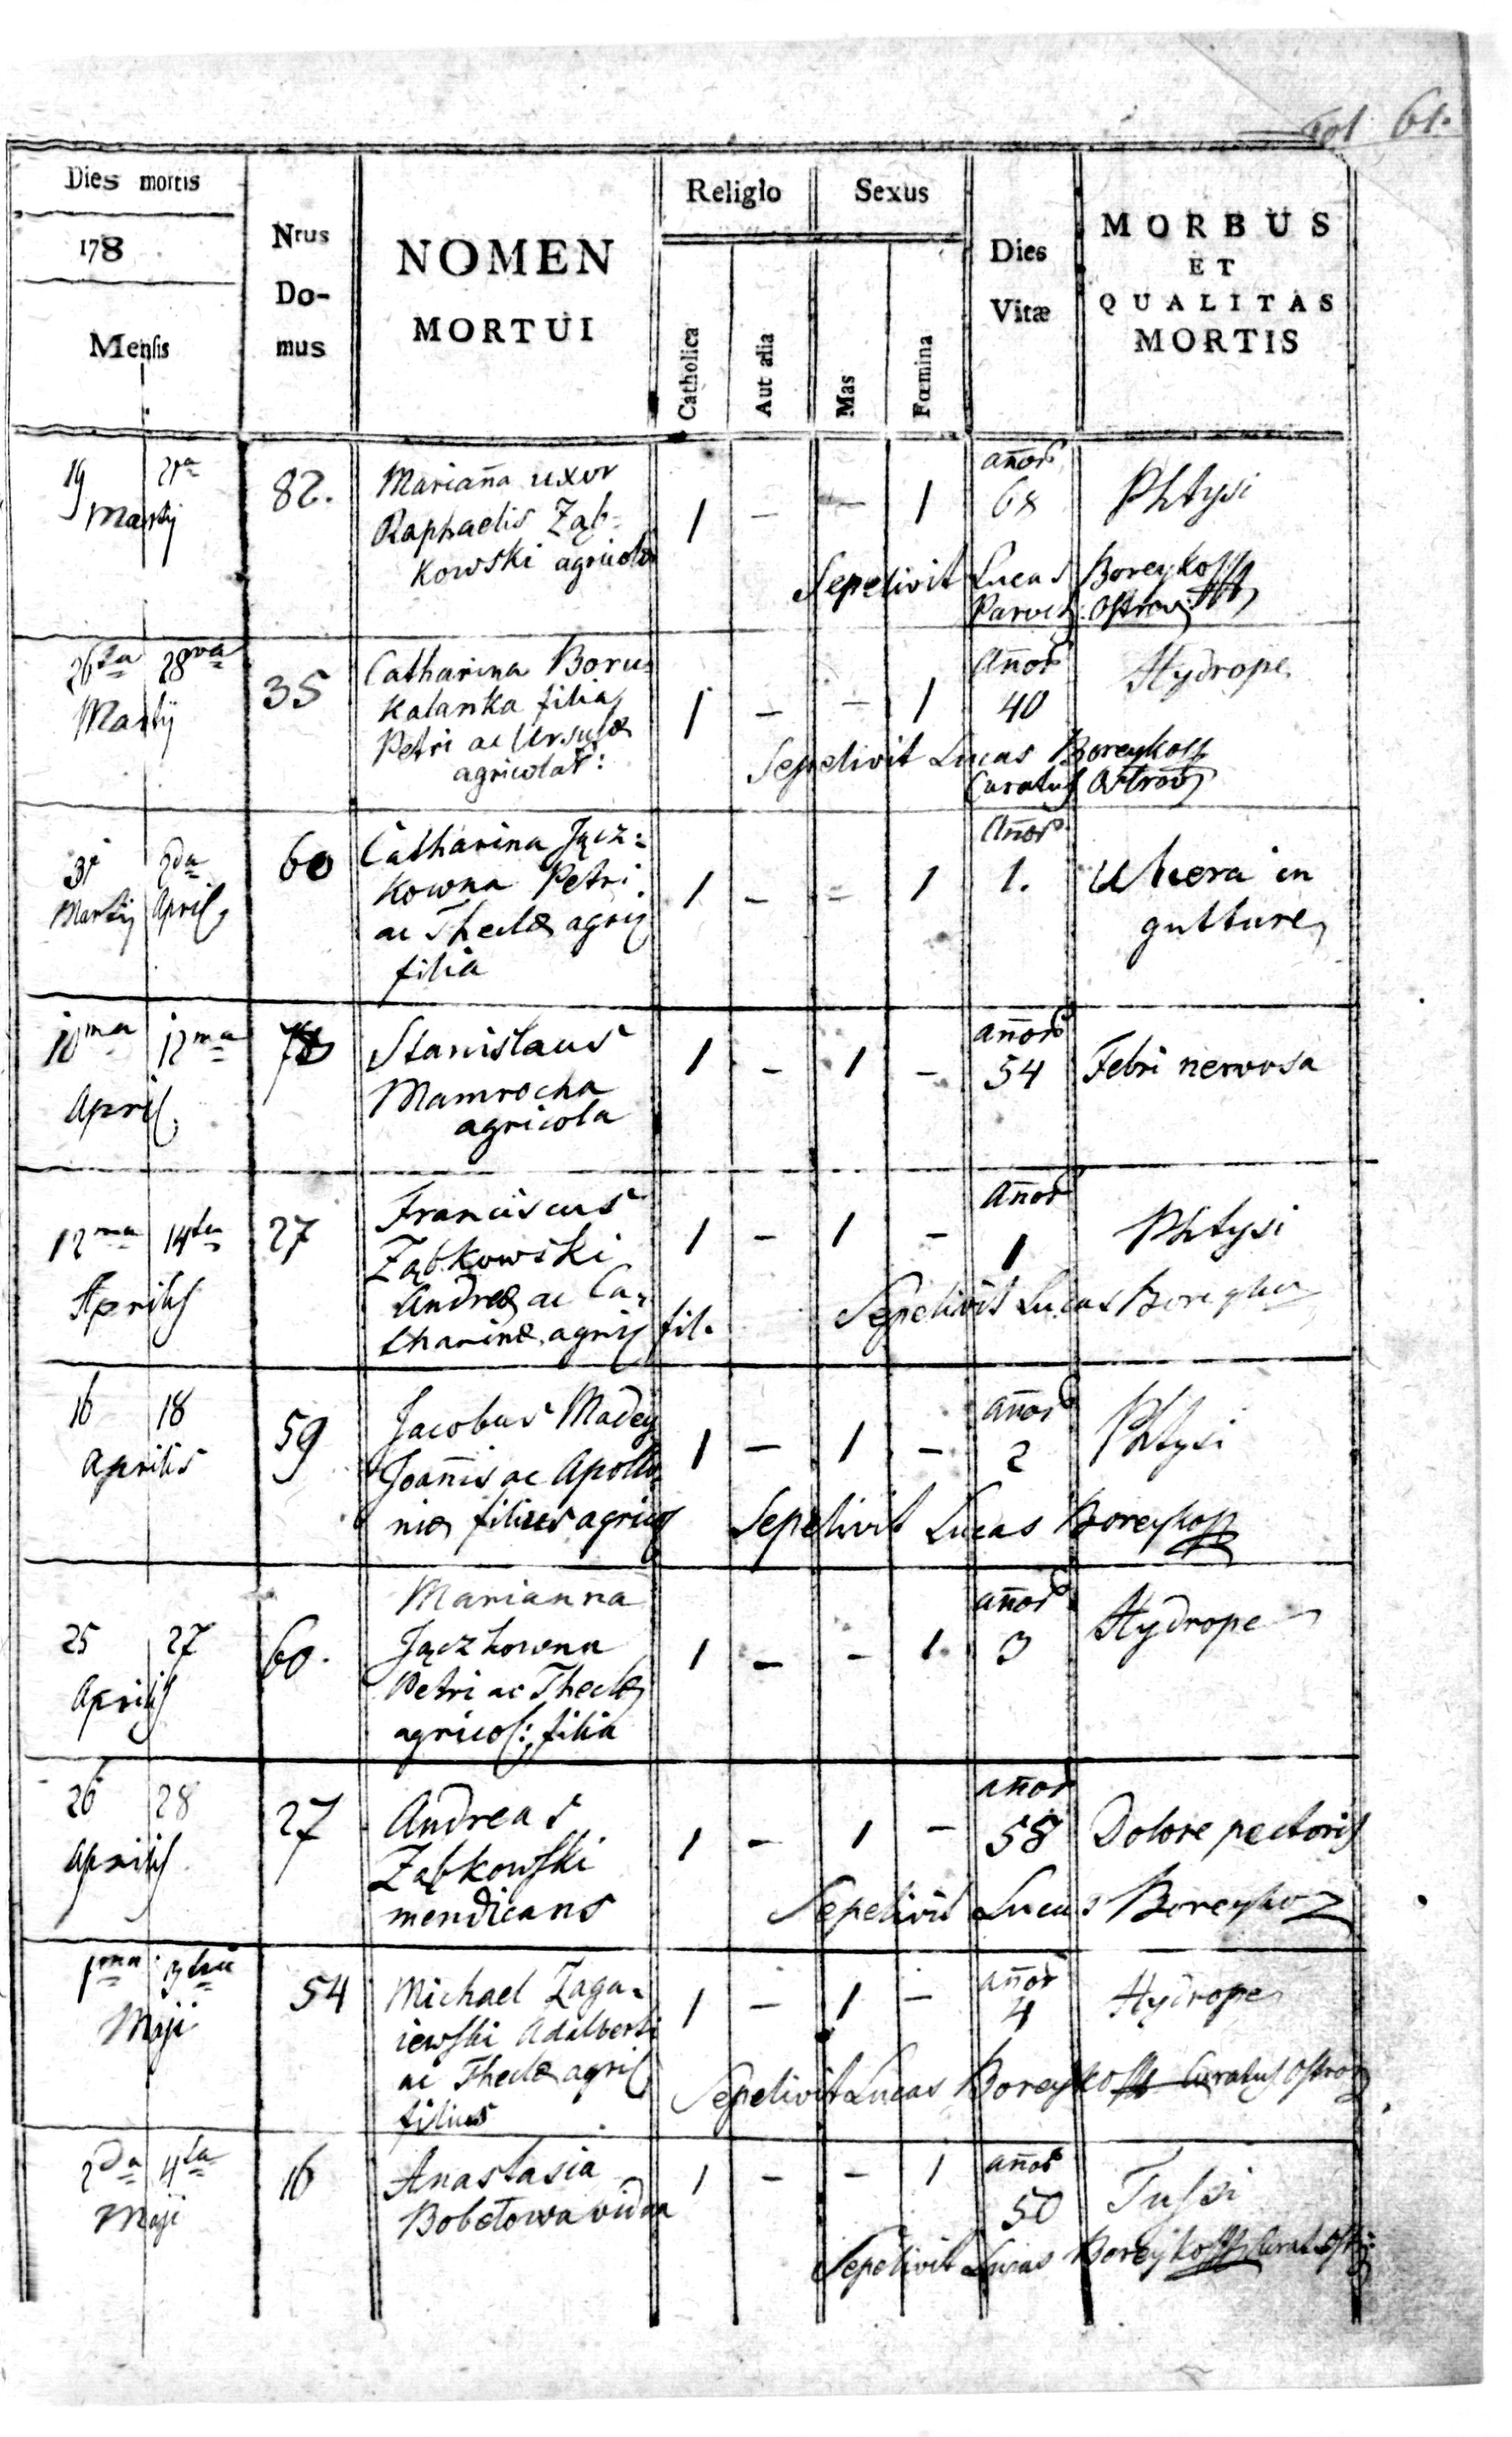 Fol 61.
Dies mortis
178
Mensis
Nrus
Do-
mus
NOMEN
MORTUI
Religio
Catholica
Aut alia
Sexus
Mas
Fœmina
Dies
Vitæ
MORBUS
ET
QUALITAS
MORTIS
19 21a
Martij
82.
Marian̄a uxor
Raphaelis Ząb-
kowski agricolæ
1 — — 1
an̄or
68
Phtysi
Sepelivit Lucas Boreyko
Paroch: Ostrov:
26ta 28va
Martij
35
Catharina Boru=
kalanka filia
Petri ac Ursulæ
agricolar:
1 — — 1
An̄or
40
Hydrope
Sepelivit Lucas Boreyko
Curatus Ostrov
31 2da
Martij April
60
Catharina Jącz=
kowna Petri
ac Theclæ agric
filia
1 — — 1
An̄or
1.
Ulcera in
gutture
10ma 12ma
April
78
Stanislaus
Mamrocha
agricola
1 — 1 —
an̄or
54
Febri nervosa
12ma 14ta
Aprilis
27
Franciscus
Ząbkowski
Andreæ ac Ca-
tharinæ agric fil.
1 — 1 —
An̄or
1
Phtysi
Sepelivit Lucas Boreyko
16 18
Aprilis
59
Jacobus Madey
Joan̄is ac Apollo-
niæ filius agric
1 — 1 —
an̄or
2
Phtysi
Sepelivit Lucas Boreyko
25 27
Aprilis
60.
Marianna
Jączkowna
Petri ac Theclæ
agricol: filia
1 — — 1.
an̄or
3
Hydrope
26 28
Aprilis
27
Andreas
Ząbkowski
mendicans
1 — 1 —
an̄or
58
Dolore pectoris
Sepelivit Lucas Boreyko
1ma 3tia
Maji
54
Michael Zaga-
iewski Adalberti
ac Theclæ agric
filius
1 — 1 —
an̄or
4
Hydrope
Sepelivit Lucas Boreyko Curatus Ostrov
2da 4ta
Maji
16
Anastasia
Bobelowa vidua
1 — — 1
an̄or
50
Tussi
Sepelivit Lucas Boreyko Curat Ostr: